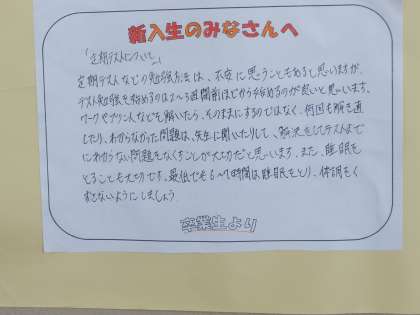 新入生のみなさんへ
「定期テストについて」
定期テストなどの勉強方法は、不安に思うこともあると思いますが、
テスト勉強を始めるのは2〜3週間前ほどから始めるのが良いと思います。
ワークやプリントなどを解いたら、そのままにするのではなく、何回も解き直
したり、わからなかった問題は、先生に聞いたりして、解決をしてテストまで
にわからない問題をなくすことが大切だと思います。また、睡眠を
とることも大切です。最低でも6〜7時間は睡眠をとり、体調をく
ずさないようにしましょう。
卒業生より